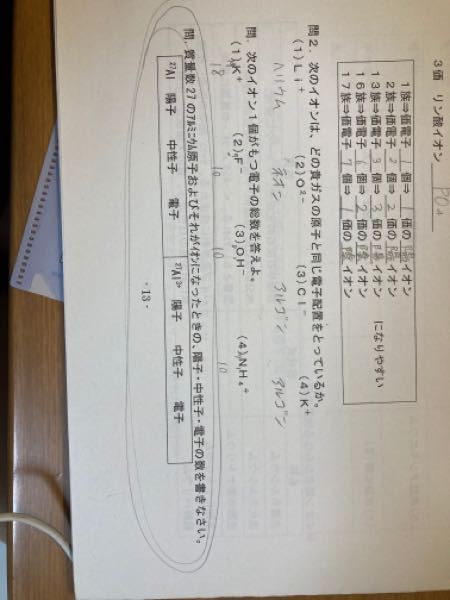 3価 リン酸イオン PO4
1族⇒価電子 1 個⇒ 1 価の陽イオン
2族⇒価電子 2 個⇒ 2 価の陽イオン
13族⇒価電子 3 個⇒ 3 価の陽イオン になりやすい
16族⇒価電子 6 個⇒ 2 価の陰イオン
17族⇒価電子 7 個⇒ 1 価の陰イオン
問2. 次のイオンは、どの貴ガスの原子と同じ電子配置をとっているか。
(1)Li⁺ (2)O²⁻ (3)Cl⁻ (4)K⁺
ヘリウム ネオン アルゴン アルゴン
問. 次のイオン1個がもつ電子の総数を答えよ。
(1)K⁺ (2)F⁻ (3)OH⁻ (4)NH₄⁺
18 10 10 10
問. 質量数27のアルミニウム原子およびそれがイオンになったときの、陽子・中性子・電子の数を書きなさい。
²⁷Al 陽子 中性子 電子 ²⁷Al³⁺ 陽子 中性子 電子
・13・